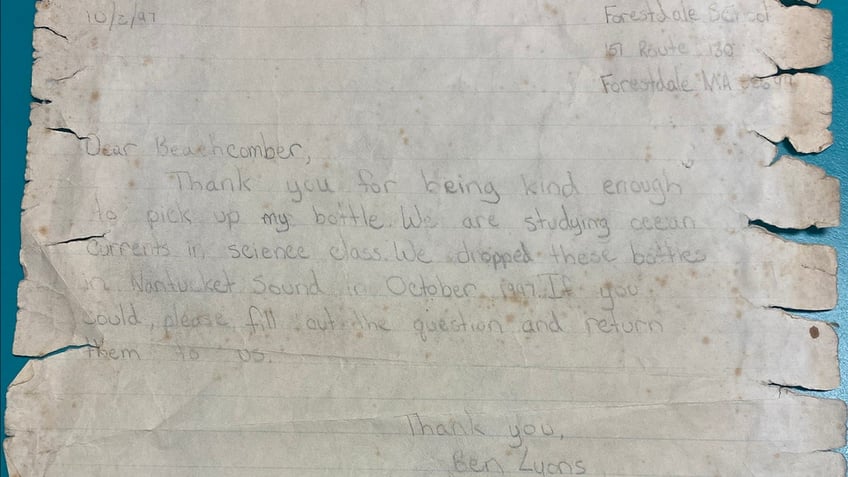 10/2/97
Forestdale School
151 Route 130
Forestdale MA
Dear Beachcomber,
Thank you for being kind enough
to pick up my bottle. We are studying ocean
currents in science class. We dropped these bottles
in Nantucket Sound in October 1997. If you
could, please fill out the question and return
them to us.
Thank you,
Ben Lyons